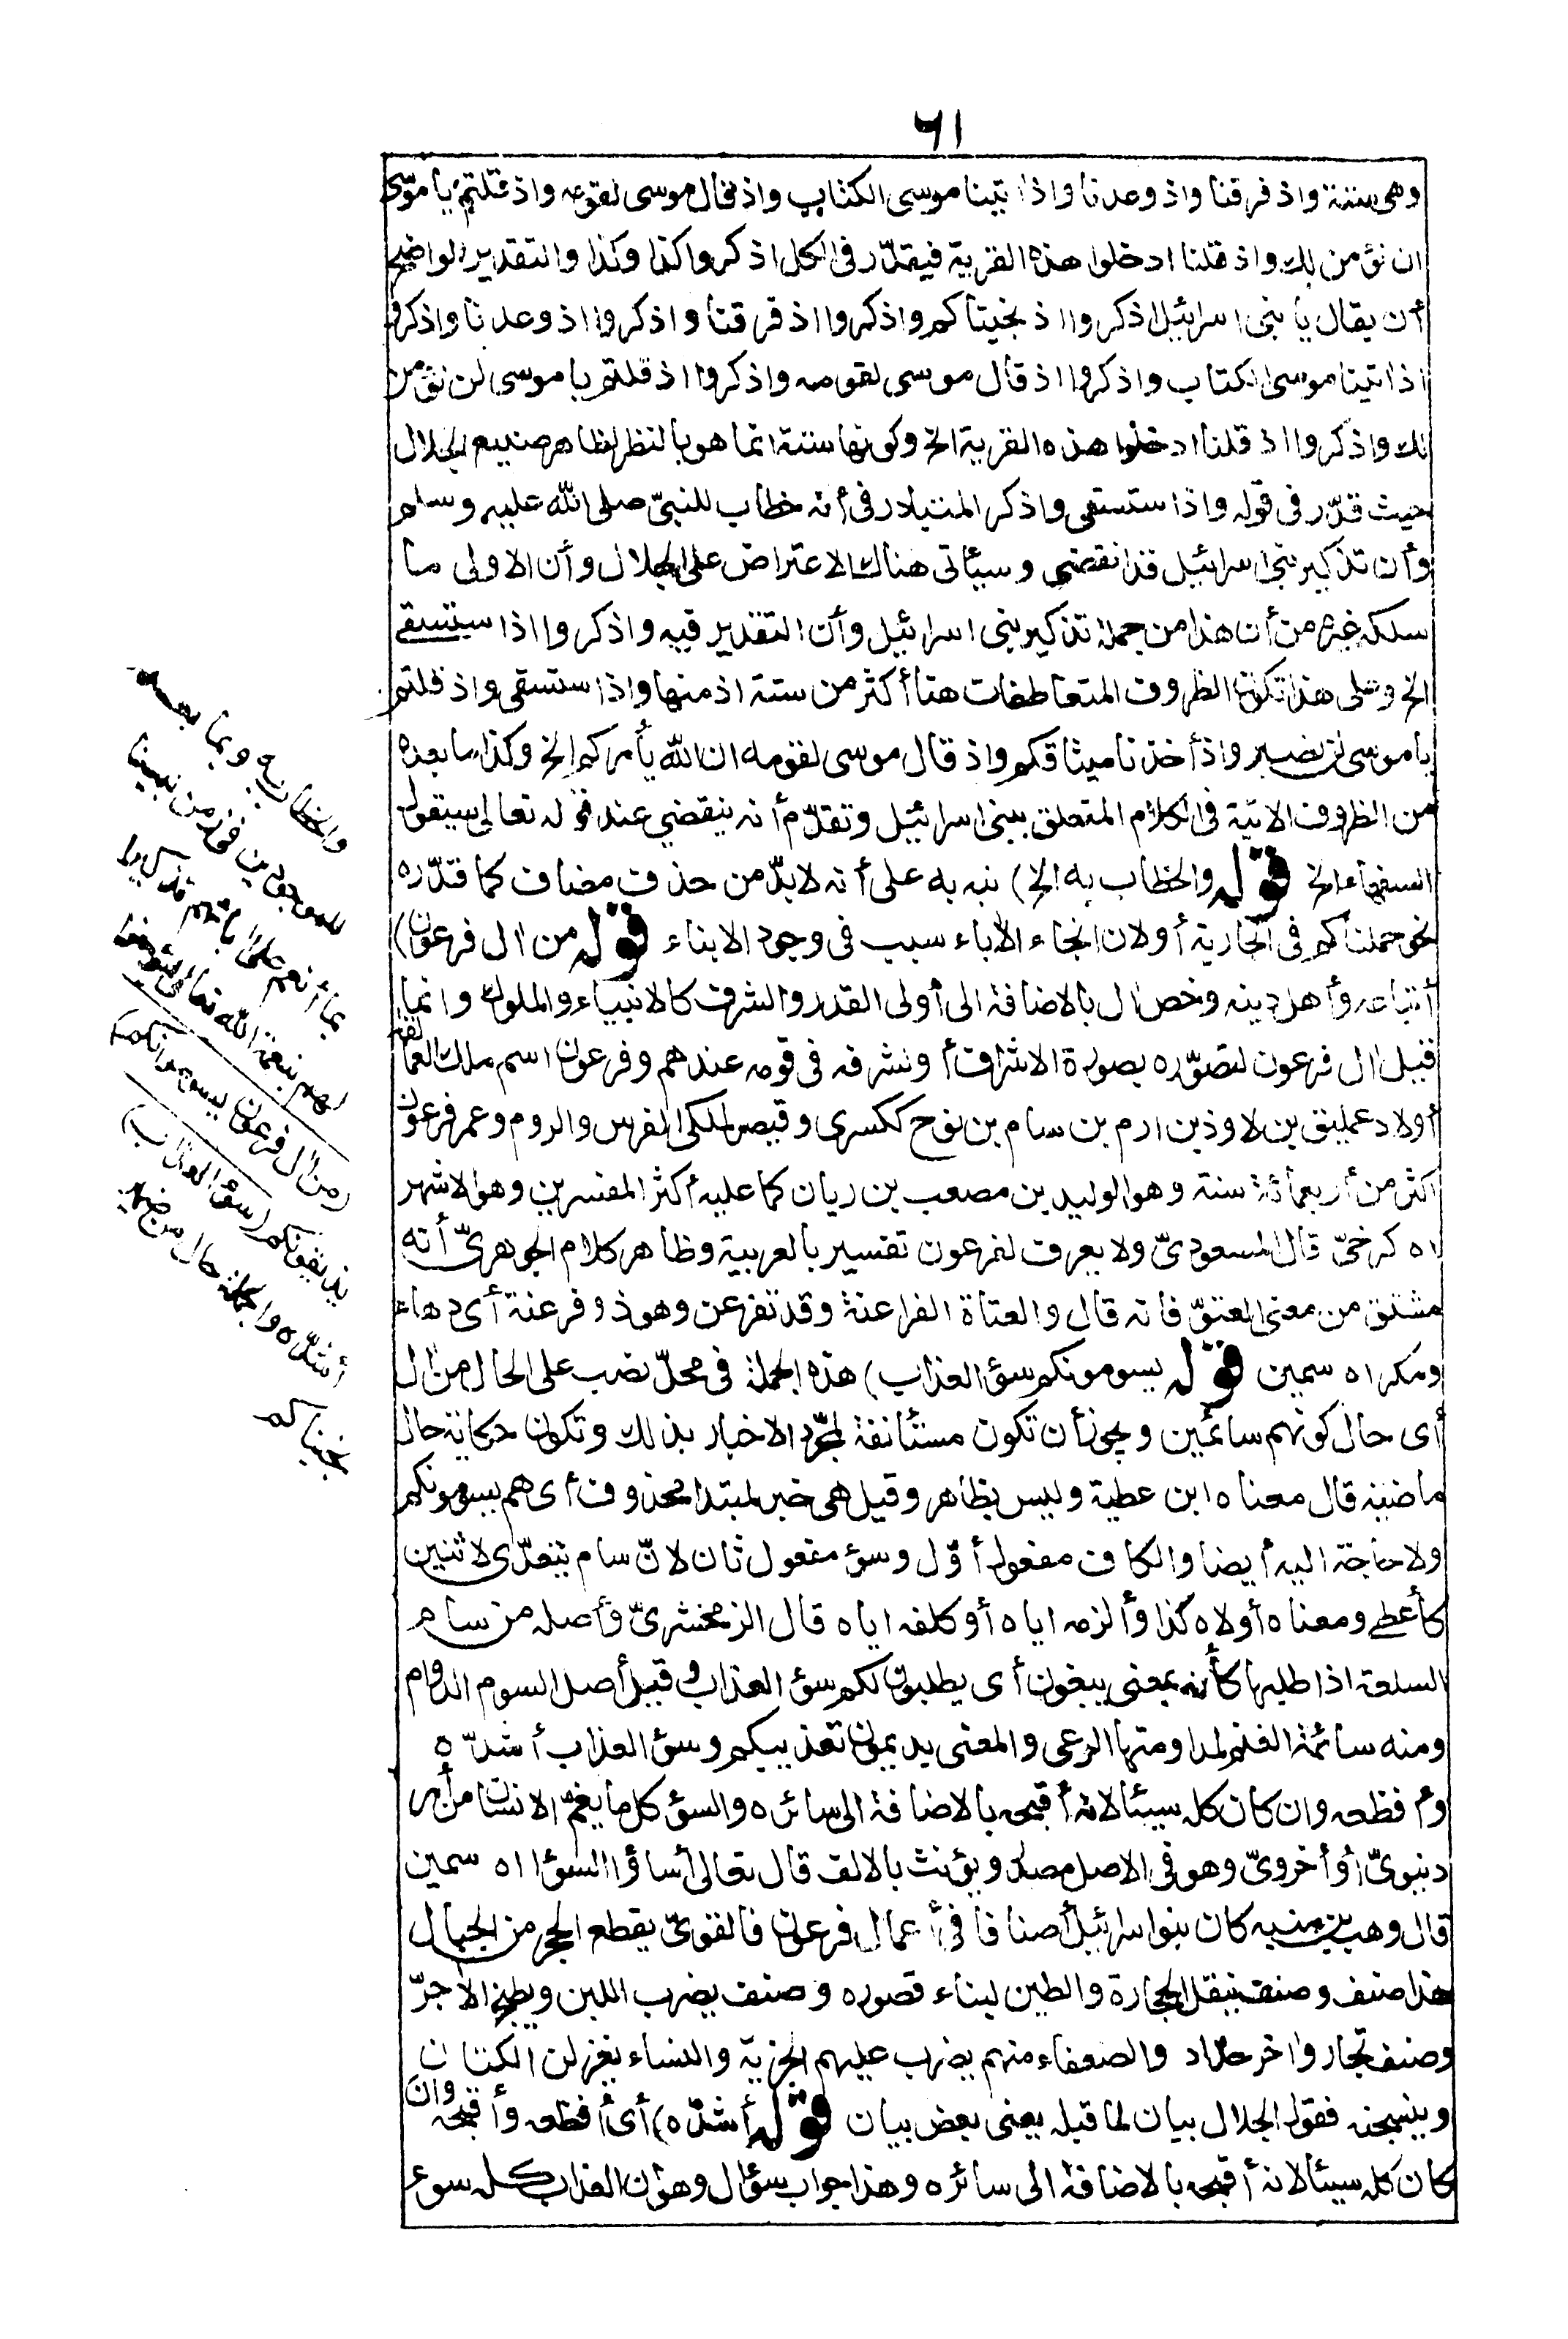 ٦١
وهى ستة واذ فرقنا واذ وعدنا واذ اتينا موسى الكتاب واذ قال موسى لقومه واذ قلتم يا موسى
لن نؤمن لك واذ قلنا ادخلوا هذه القرية فيقدّر فى الكل اذكروا كذا وكذا والتقدير الواضح
أن يقال يا بنى اسرائيل اذكروا اذ نجيناكم واذكروا اذ فرقنا واذكروا اذ وعدنا واذكروا
اذ اتينا موسى الكتاب واذكروا اذ قال موسى لقومه واذكروا اذ قلتم يا موسى لن نؤمن
لك واذكروا اذ قلنا ادخلوا هذه القرية الخ وكونها ستة انما هو بالنظر لظاهر صنيع الجلال
حيث قدّر فى قوله واذ استسقى واذكر المتبادر فى أنه خطاب للنبىّ صلى الله عليه وسلم
وأن تذكير بنى اسرائيل قد انقضى وسيأتى هناك الاعتراض على الجلال وأن الاولى ما
سلكه غيره من أن هذا من جملة تذكير بنى اسرائيل وأن التقدير فيه واذكروا اذ استسقى
الخ وعلى هذا تكون الظروف المتعاطفات هنا أكثر من ستة اذ منها واذ استسقى واذ قلتم
يا موسى لن نصبر واذ أخذنا ميثاقكم واذ قال موسى لقومه ان الله يأمركم الخ وكذا ما بعده
من الظروف الاتية فى الكلام المتعلق ببنى اسرائيل وتقدّم أنه ينقضي عند قوله تعالى سيقول
السفهاء الخ قوله والخطاب به الخ) نبه به على أنه لابدّ من حذف مضاف كما قدّره
نحو حملناكم فى الجارية أو لان انجاء الاباء سبب فى وجود الابناء قوله من ال فرعون)
أتباعه وأهل دينه وخص ال بالاضافة الى أولى القدر والشرف كالانبياء والملوك وانما
قيل ال فرعون لتصوّره بصورة الاشراف أو لشرفه فى قومه عندهم وفرعون اسم ملك العمالقة
أولاد عمليق بن لاوذ بن ارم بن سام بن نوح ككسرى وقيصر لملكى الفرس والروم وعمر فرعون
اكثر من أربعمائة سنة وهو الوليد بن مصعب بن ريان كما عليه أكثر المفسرين وهو الاشهر
اه كرخىّ قال المسعودىّ ولا يعرف لفرعون تفسير بالعربية وظاهر كلام الجوهرىّ أنه
مشتق من معنى العتوّ فانه قال والعتاة الفراعنة وقد تفرعن وهو ذو فرعنة أى دهاء
ومكر اه سمين قوله يسومونكم سؤ العذاب) هذه الجملة فى محلّ نصب على الحال من ال
أى حال كونهم سائمين ويجوز أن تكون مستأنفة لمجرّد الاخبار بذلك وتكون حكاية حال
ماضية قال معناه ابن عطية وليس بظاهر وقيل هى خبر لمبتدا محذوف أى هم يسومونكم
ولا حاجة اليه أيضا والكاف مفعول أوّل وسؤ مفعول ثان لانّ سام يتعدّى لاثنين
كأعطى ومعناه أولاه كذا وألزمه اياه أو كلفه اياه قال الزمخشرىّ وأصله من سام
السلعة اذا طلبها كأنه بمعنى يبغون أى يطلبون لكم سؤ العذاب وقيل أصل السوم الدوام
ومنه سائمة الغنم لمداومتها الرعى والمعنى يديمون تعذيبكم وسؤ العذاب أشدّه
وأفظعه وان كان كله سيئا لانه أقبحه بالاضافة الى سائره والسؤ كل ما يغمّ الانسان من أمر
دنيوىّ أو أخروىّ وهو فى الاصل مصدر ويؤنث بالالف قال تعالى أساؤا السؤا اه سمين
قال وهب بن منبه كان بنوا اسرائيل أصنافا فى أعمال فرعون فالقوىّ يقطع الحجر من الجبال
هذا صنف وصنف ينقل الحجارة والطين لبناء قصوره وصنف يضرب اللبن ويطبخ الاجرّ
وصنف نجار واخر حدّاد والضعفاء منهم يضرب عليهم الجزية والنساء يغزلن الكتان
وينسجنه فقول الجلال بيان لما قبله يعنى بعض بيان قوله أشدّه) أى أفظعه وأقبحه وان
كان كله سيئا لانه أقبحه بالاضافة الى سائره وهذا جواب سؤال وهو أن العذاب كله سوء
والخطاب به وبما بعده
للموجودين فى زمن نبينا
بما أنعم على ابائهم تذكيرا
لهم بنعمة الله تعالى ليؤمنوا
(من ال فرعون يسومونكم)
يذيقونكم (سؤ العذاب)
أشدّه والجملة حال من ضمير
نجيناكم